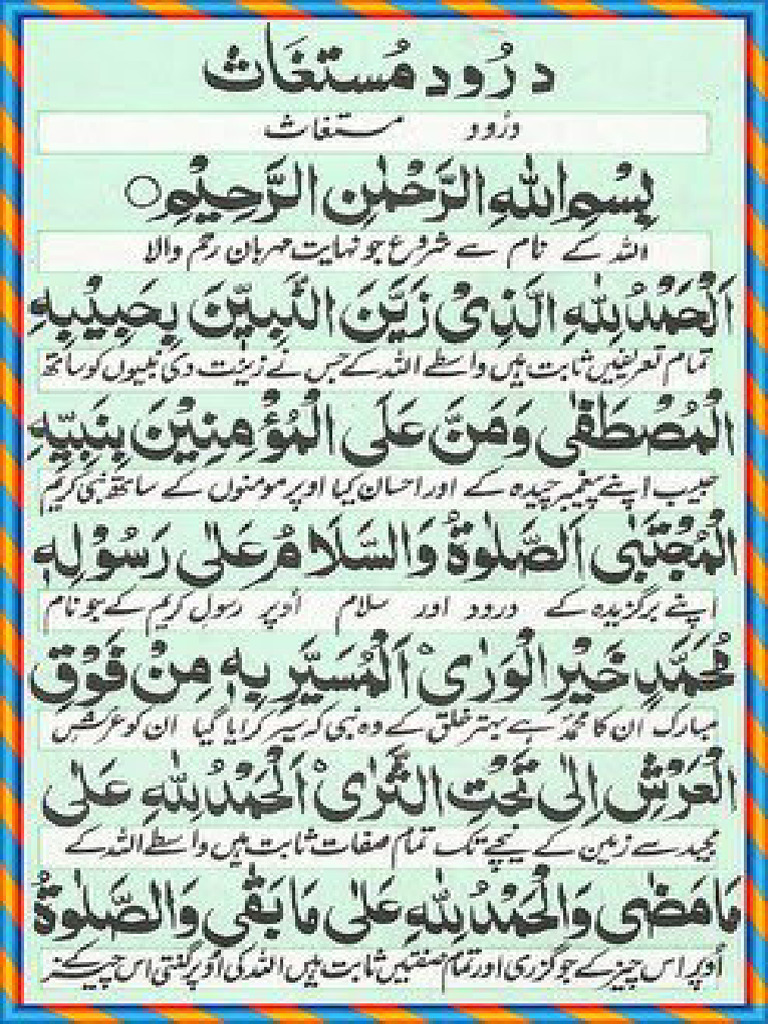 دُرُود مُستغَاث
درُود مستغاث
بِسْمِ اللهِ الرَّحْمٰنِ الرَّحِيْمِ○
اللہ کے نام سے شروع جو نہایت مہربان رحم والا
اَلْحَمْدُ لِلّٰهِ الَّذِيْ زَيَّنَ النَّبِيّٖنَ بِحَبِيْبِهِ
تمام تعریفیں ثابت ہیں واسطے اللہ کے جس نے زینت دی نبیوں کو ساتھ
الْمُصْطَفٰى وَمَنَّ عَلَى الْمُؤْمِنِيْنَ بِنَبِيِّهِ
حبیب اپنے پیغمبر چیدہ کے اور احسان کیا اوپر مومنوں کے ساتھ نبی کریم
الْمُجْتَبٰى اَلصَّلٰوةُ وَالسَّلَامُ عَلٰى رَسُوْلِهٖ
اپنے برگزیدہ کے درود اور سلام اُوپر رسول کریم کے جو نام
مُحَمَّدٍ خَيْرِ الْوَرٰىْ اَلْمُسَيَّرِ بِهٖ مِنْ فَوْقِ
مبارک ان کا محمدؐ ہے بہتر خلق کے وہ نبی کہ سیر کرایا گیا ان کو عرش
الْعَرْشِ اِلٰى تَحْتِ الثَّرٰىْ اَلْحَمْدُ لِلّٰهِ عَلٰى
مجید سے زمین کے نیچے تک تمام صفات ثابت ہیں واسطے اللہ کے
مَا مَضٰى وَالْحَمْدُ لِلّٰهِ عَلٰى مَا بَقٰى وَالصَّلٰوةُ
اُوپر اس چیز کے جو گزری اور تمام صفتیں ثابت ہیں اللہ کی اُوپر گنتی اس چیز کے